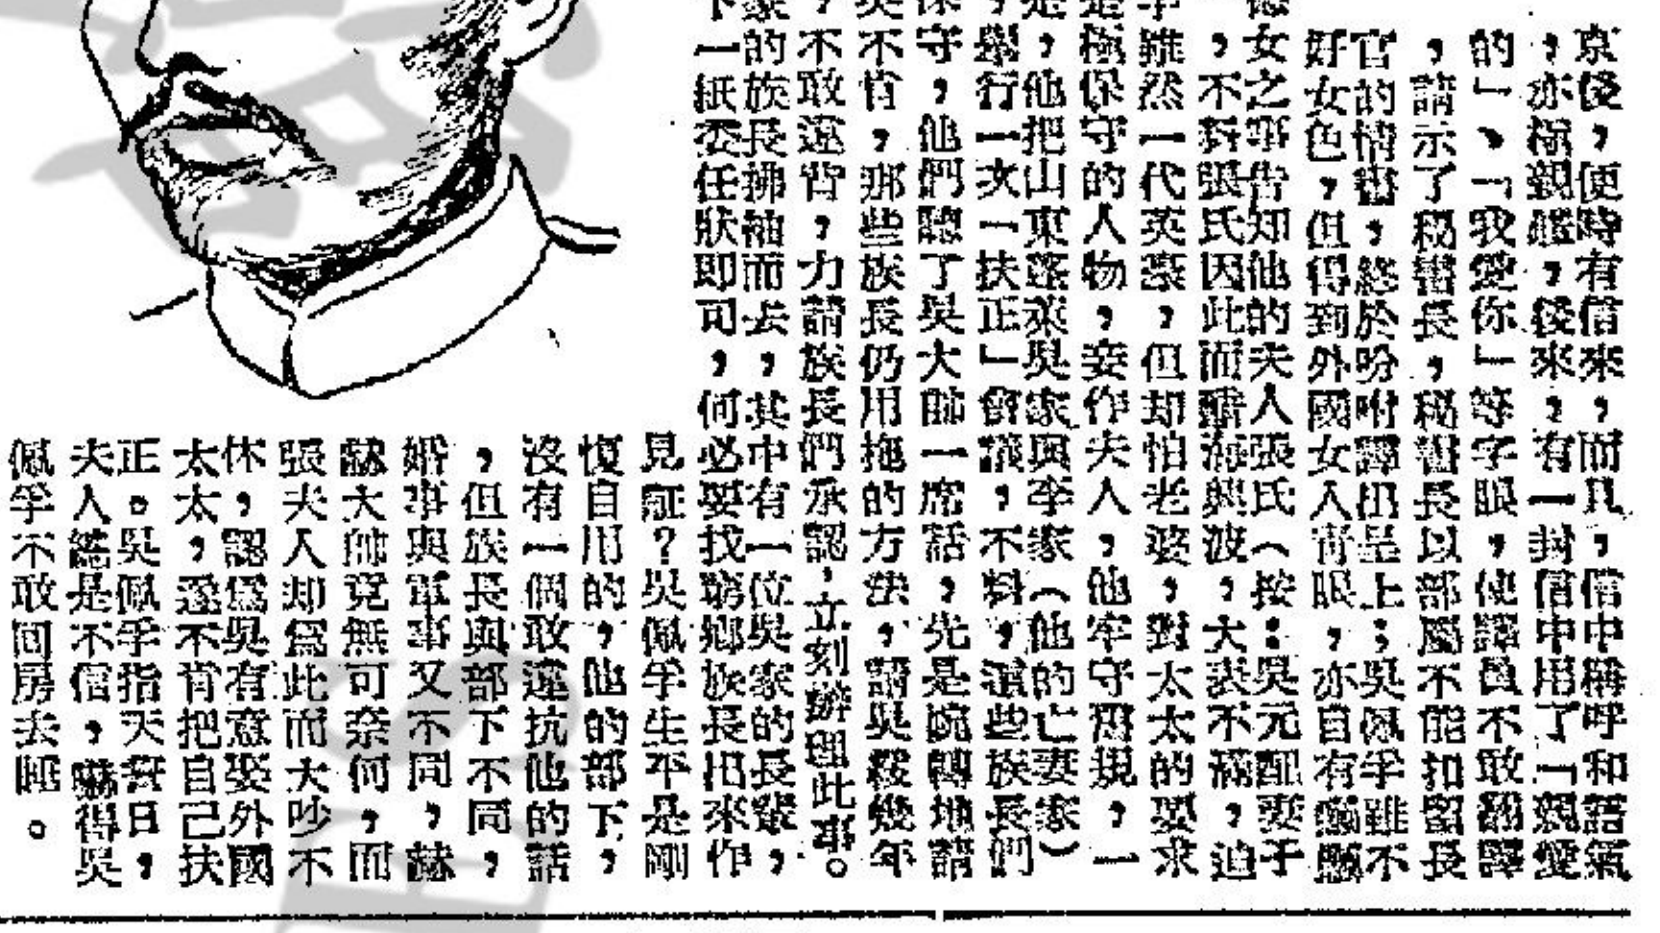 京後，便時有信來，而且，信中稱呼和語氣
，亦極親暱，後來，有一封信中用了「親愛
的」、「我愛你」等字眼，使譯員不敢翻譯
，請示了秘書長，秘書長以部屬不能扣留長
官的情書，終於吩咐譯出呈上；吳佩孚雖不
好女色，但得到外國女人青眼，亦自有
女之事告知他的夫人張氏（按：吳元配妻子
，不料張氏因此而醋海興波，大表不滿，迫
雖然一代英豪，但却怕老婆，對太太的要求
極保守的人物，妾作夫人，他牢守舊規，一
是，他把山東蓬萊吳家與李家（他的亡妻家）
，舉行一次「扶正」會議，不料，這些族長們
保守，他們聽了吳大帥一席話，先是婉轉地請
吳不肯，那些族長仍用拖的方法，請吳緩幾年
，不敢違背，力請族長們承認，立刻辦理此事。
家的族長拂袖而去，其中有一位吳家的長輩，
下一紙委任狀即可，何必要找窮鄉族長出來作
見証？吳佩孚生平是剛
愎自用的，他的部下，
沒有一個敢違抗他的話
，但族長與部下不同，
婚事與軍事又不同，赫
赫大帥竟無可奈何，而
張夫人却為此而大吵不
休，認為吳有意娶外國
太太，遂不肯把自己扶
正。吳佩孚指天誓日，
夫人總是不信，嚇得吳
佩孚不敢回房去睡。